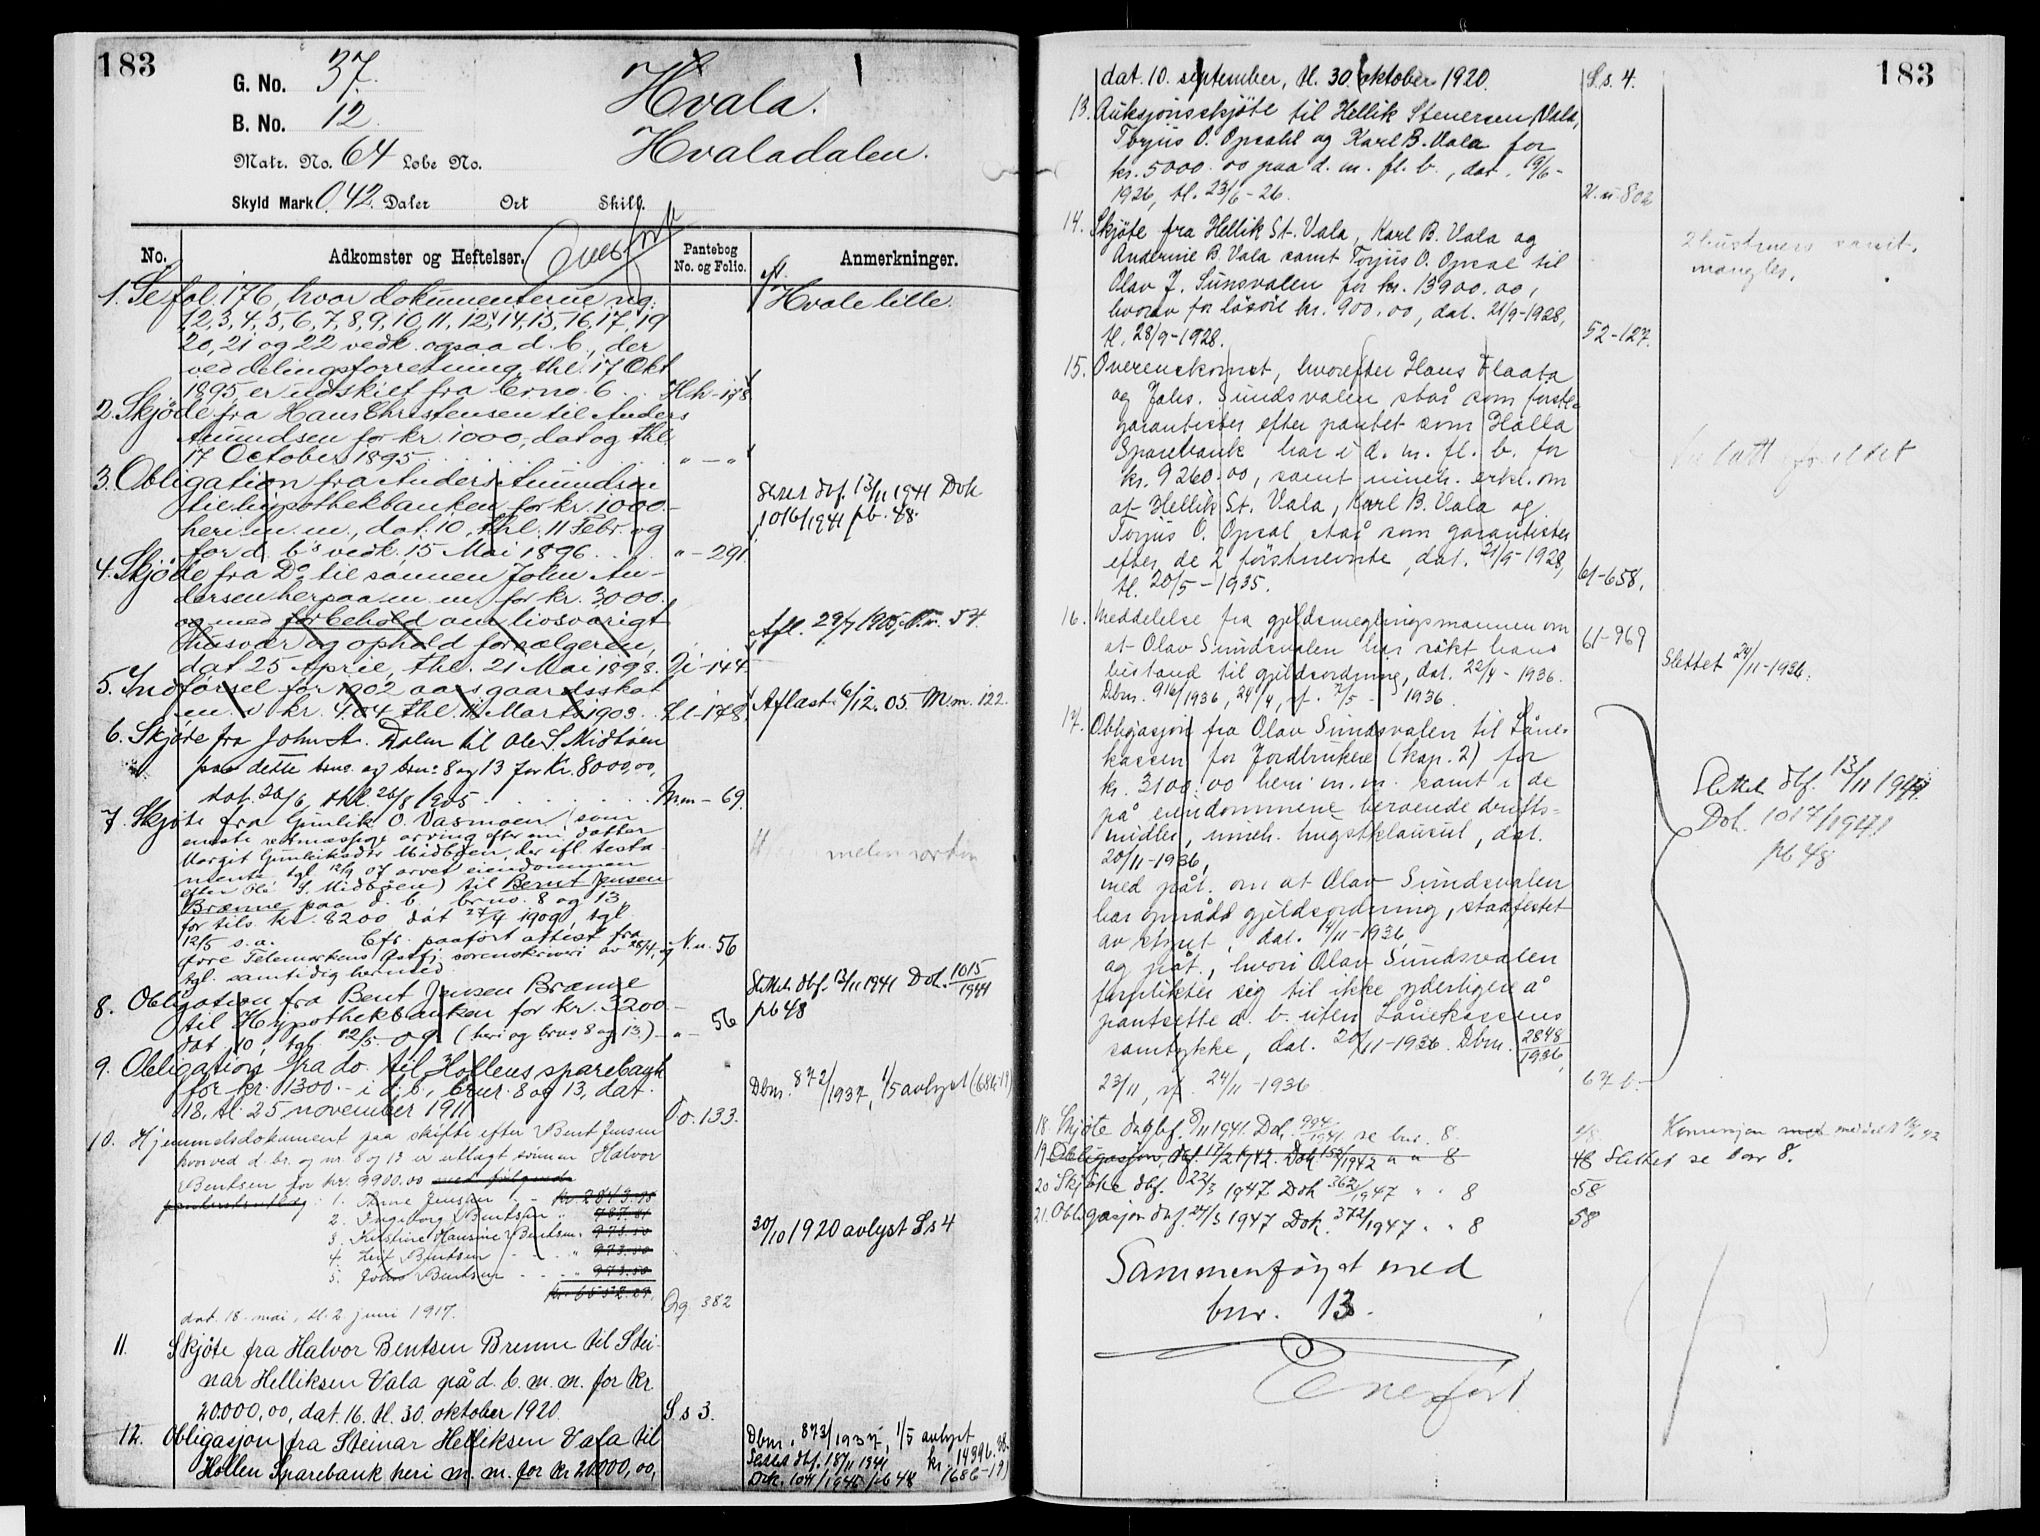 183
G. No. 37.
B. No. 12
Matr. No. 64 Løbe No.
Skyld Mark 0,42. Daler Ort Skill.
Hvala.
Hvaladalen.
No. Adkomster og Heftelser. Overført Pantebog No. og Folio. Anmerkninger.
1. Se fol. 176, hvor dokumenterne no. eft. Hvale lille.
1,2,3,4,5,6,7,8,9,10,11,12,14,15,16,17,19
20, 21 og 22 vedk. ogsaa d. b., der
ved delingsforretning, thl. 17 Okt
1895, er udskilt fra brno. 6 . . H.h - 178
2. Skjøde fra Hans Christensen til Anders
Amundsen for kr. 1000, dat og thl.
17 October 1895 . . . " — "
3. Obligation fra Anders Amundsen
til hypothekbanken for kr. 1000.-
heri m. m., dat. 10, thl. 11 Febr. og
for d. b's vedk. 15 Mai 1896 . . " - 291.
Slettet dbf. 13/11 1941 Dok
1016/1941 pb. 48.
4. Skjøde fra Do til sønnen John An-
dersen herpaa m. m. for kr. 3000.
og med forbehold om livsvarigt
husvær og ophold for sælgeren,
dat 25 April, thl. 21 Mai 1898. Ji - 144.
Afl. 29/7 1905, N.n. 54.
5. Indførsel for 1902 aars gaardsskat
m. v. kr. 4.04 thl. 11 Marts 1903. Ll - 178.
Aflæst 6/12. 05. M.m. 122.
6. Skjøde fra John A. Dalen til Ole S. Midtøen
paa dette brno. og brno 8 og 13 for Kr. 8000,00,
dat. 26/6, thl. 26/8 1905 . . . . M.m - 69.
7. Skjøte fra Gunlik O. Vasmoen (som
eneste retmæssige arving efter sin datter
Margit Gunleiksdtr Midbøen, der ifl. testa-
mente tgl 12/9 07 arvet eiendommen
efter Ole S. Midbøen) til Bernt Jensen
Brænne paa d. b, brno. 8 og 13,
for tils. kr. 8200, dat 27/4 1909, tgl.
12/5 s. a. Cfr. paaført attest fra
øvre Telemarkens østfj. sorenskriveri av 28/4, og N.n. 56
tgl. samtidig hermed
8. Obligation fra Bent Jensen Brænne
til Hypothekbanken for kr. 3200 –
dat. 10, tgl. 12/5 - 09 (heri og brno 8 og 13.) " - 56
Slettet dbf. 13/11 1941 Dok. 1015/1941
pb 48
9. Obligation fra do. til Hollens sparebank
for kr. 1300.– i d. b., brnr. 8 og 13, dat.
18, tl. 25 november 1911 O.o. 133.
Dbnr. 872/1937, 1/5 avlyst (686-19)
10. Hjemmelsdokument paa skifte efter Bent Jensen
hvorved d. br. og nr. 8 og 13 er utlagt sønnen Halvor
Bentsen for kr. 9900.00 med følgende
panteutlæg: 1. Anne Jensen . . kr. 2843.05
2. Ingeborg Bentsen " 787.81
3. Kirstine Hansine Bentsen " 973.50
4. Leif Bentsen " 973.50
5. Johs Bentsen " 973.50
Kr. 6552.29.
30/10 1920 avlyst Ss 4
dat. 18. mai, tl. 2 juni 1917. Qq. 382
11. Skjøte fra Halvor Bentsen Brenne til Stei-
nar Helliksen Vala på d. b. m. m. for kr.
20.000,00, dat. 16. tl. 30. oktober 1920. S.s 3.
12. Obligasjon fra Steinar Helliksen Vala til
Hollen Sparebank heri m. m. for kr 20000,00,
Dbnr. 873/1937, 1/5 avlyst
kr. 14996.38.
Slettet dbf. 18/11 1941 (686-19)
Dok. 1041/1941 pb 48
183
dat. 10. september, tl. 30. oktober 1920. S.s. 4.
13. Auksjonsskjøte til Hellik Stenersen Vala,
Torjus O. Opsahl og Karl B. Vala for
kr. 5000.00 paa d. m. fl. b., dat. 19/6 -
1926, tl. 23/6 - 26. U.u. 802
14. Skjøte fra Hellik St. Vala, Karl B. Vala og
Andermine B. Vala samt Torjus O. Opsal til
Olav J. Sunsvalen for kr. 13900.00,
hvorav for løsøre kr. 900.00, dat. 21/9 - 1928,
tl. 28/9 - 1928. 52 - 127.
2 hustruers samt.
mangler.
15. Overenskomst, hvorefter Hans Flaata
og Johs. Sundsvalen står som første
garantister efter pantet som Holla
Sparebank har i d. m. fl. b. for
kr. 9260.00, samt inneh. erkl. om
at Hellik St. Vala, Karl B. Vala og
Torjus O. Opsal står som garantister
efter de 2 førstnevnte, dat. 21/9 - 1928,
tl. 20/5 - 1935. 61 - 658.
16. Meddelelse fra gjeldsmeglingsmannen om
at Olav Sundsvalen har søkt hans
bistand til gjeldsordning, dat. 22/4 - 1936.
Dbnr. 916/1936, 24/4, rf. 7/5 - 1936.
61 - 969
Slettet 24/11 - 1936.
17. Obligasjon fra Olav Sundsvalen til Låne-
kassen for Jordbrukere (kap. 2) for
kr. 3100.00 heri m. m. samt i de
på eiendommene beroende drifts-
midler, inneh. hugstklausul, dat.
20/11 - 1936,
med påt. om at Olav Sundsvalen
har opnådd gjeldsordning, stadfestet
av styret, dat. 4/11 - 1936,
og påt., hvori Olav Sundsvalen
forplikter sig til ikke yderligere å
pantsette d. b. uten Lånekassens
samtykke, dat. 20/11 - 1936. Dbnr. 2848/1936,
23/11, rf. 24/11 - 1936 67 b.
Slettet dbf. 13/11 1941
Dok. 1017/1941
pb 48
18. Skjøte dagbf. 8/11 1941. Dok. 994/1941 se bnr. 8.
Konsesjon med meddelt
19 Obligasjon, dbf 17/2 1942. Dok 152/1942 " " 8 48 Slettet se bnr 8.
20 Skjøte dbf. 22/3 1947 Dok 362/1947 " " 8 58
21. Obligasjon dbf. 24/3 1947 Dok. 372/1947 " " 8 58
Sammenføyet med
bnr. 13.
Overført